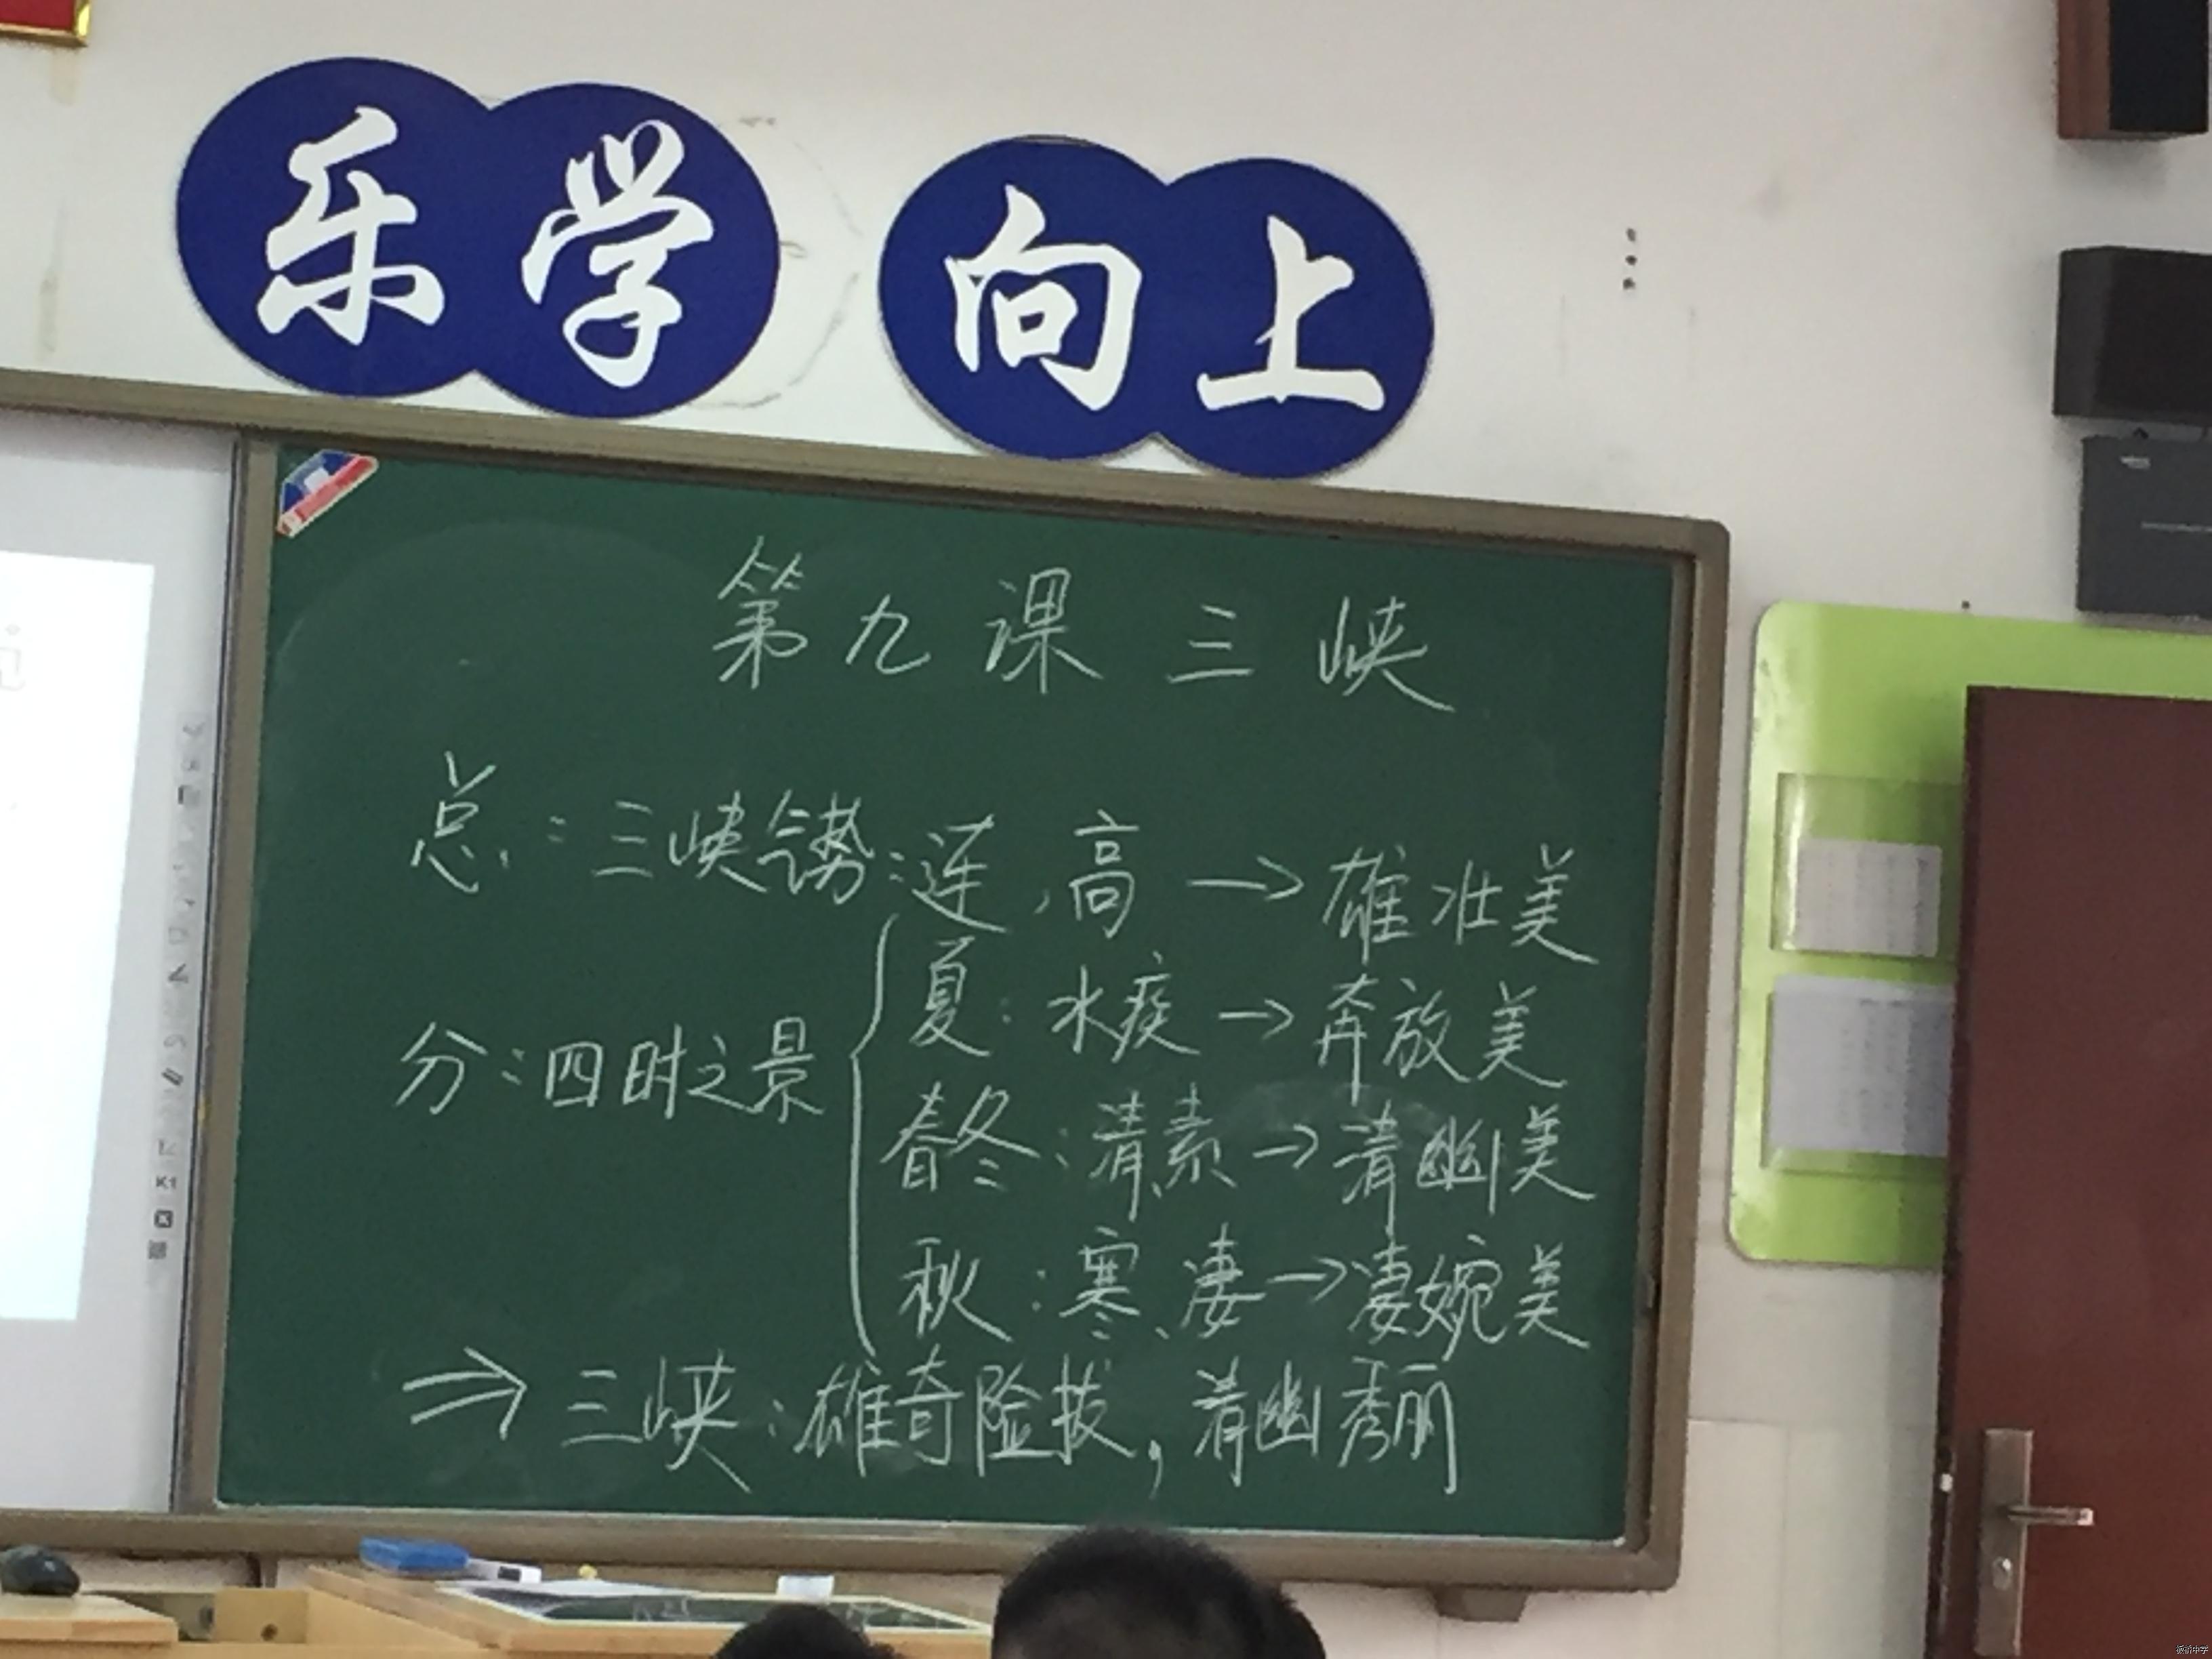 乐学 向上
第九课 三峡
总：三峡气势：连，高→雄壮美
分：四时之景
夏：水疾→奔放美
春冬：清、素→清幽美
秋：寒、凄→凄婉美
⇒三峡：雄奇险拔，清幽秀丽